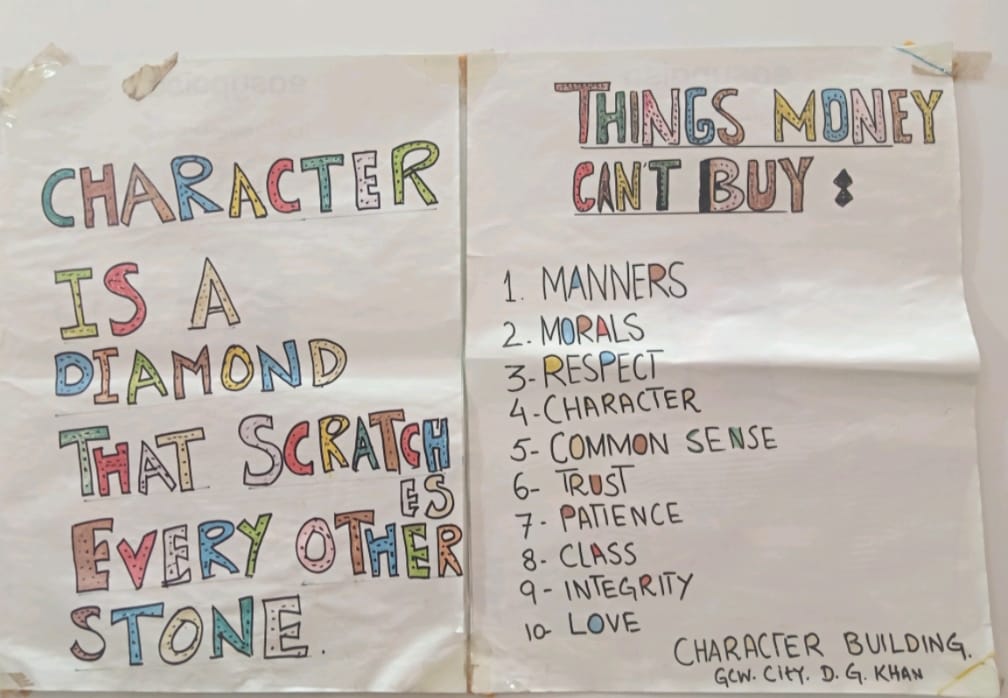 CHARACTER
IS A
DIAMOND
THAT SCRATCH
ES
EVERY OTHER
STONE.
THINGS MONEY
CAN'T BUY :
1. MANNERS
2. MORALS
3- RESPECT
4- CHARACTER
5- COMMON SENSE
6- TRUST
7- PATIENCE
8- CLASS
9- INTEGRITY
10- LOVE
CHARACTER BUILDING.
GCW. CITY. D. G. KHAN